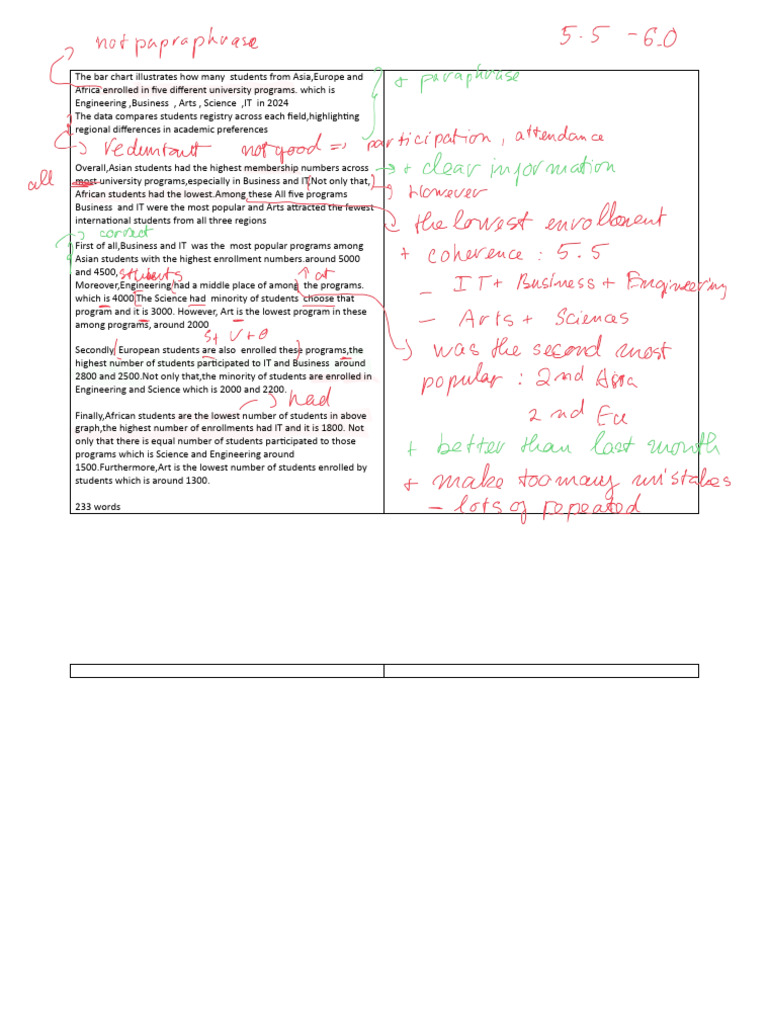 not papraphrase
5.5 - 6.0
The bar chart illustrates how many students from Asia,Europe and
Africa enrolled in five different university programs. which is
Engineering ,Business , Arts , Science ,IT in 2024
The data compares students registry across each field,highlighting
regional differences in academic preferences
+ paraphrase
redundant not good => participation, attendance
Overall,Asian students had the highest membership numbers across
most university programs,especially in Business and IT.Not only that,
African students had the lowest.Among these All five programs
Business and IT were the most popular and Arts attracted the fewest
international students from all three regions
all
+ clear information
However
the lowest enrollment
correct
First of all,Business and IT was the most popular programs among
Asian students with the highest enrollment numbers.around 5000
and 4500,
students
at
Moreover,Engineering had a middle place of among the programs.
which is 4000 The Science had minority of students choose that
program and it is 3000. However, Art is the lowest program in these
among programs, around 2000
+ coherence : 5.5
- IT + Business + Engineering
- Arts + Sciences
S + V + O
Secondly, European students are also enrolled these programs,the
highest number of students participated to IT and Business around
2800 and 2500.Not only that,the minority of students are enrolled in
Engineering and Science which is 2000 and 2200.
was the second most
popular : 2nd Asia
2nd Eu
had
Finally,African students are the lowest number of students in above
graph,the highest number of enrollments had IT and it is 1800. Not
only that there is equal number of students participated to those
programs which is Science and Engineering around
1500.Furthermore,Art is the lowest number of students enrolled by
students which is around 1300.
+ better than last month
+ make too many mistakes
- lots of repeated
233 words